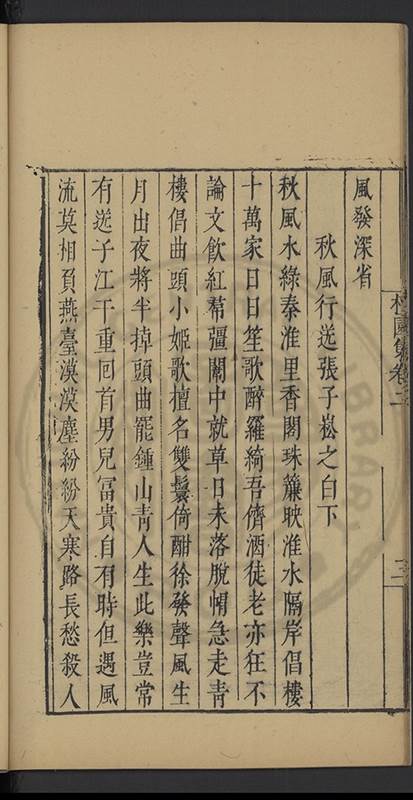 風發深省
秋風行送張子崧之白下
秋風水綠秦淮里香閣珠簾映淮水隔岸倡樓
十萬家日日笙歌醉羅綺吾儕酒徒老亦狂不
論文飲紅藭彊闌中就草日未落脫帽急走青
樓倡曲頭小姬歌擅名雙鬟倚酣徐發聲風生
月出夜將半掉頭曲罷鍾山青人生此樂豈常
有送子江干重回首男兒冨貴自有時但遇風
流莫相負燕臺漠漠塵紛紛天寒路長愁殺人
集卷二
三